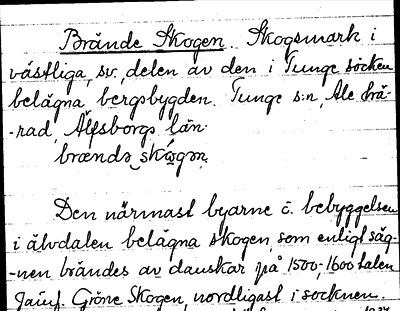 Brände Skogen. Skogsmark i
västliga, sv. delen av den i Tunge socken
belägna bergsbygden. Tunge s:n, Ale hä-
-rad, Älfsborgs län.
brændə skógən.
Den närmast byarne o. bebyggelsen
i älvdalen belägna skogen, som enligt säg-
-nen brändes av danskar på 1500-, 1600 talen
Jämf. Gröne Skogen, nordligast i socknen.